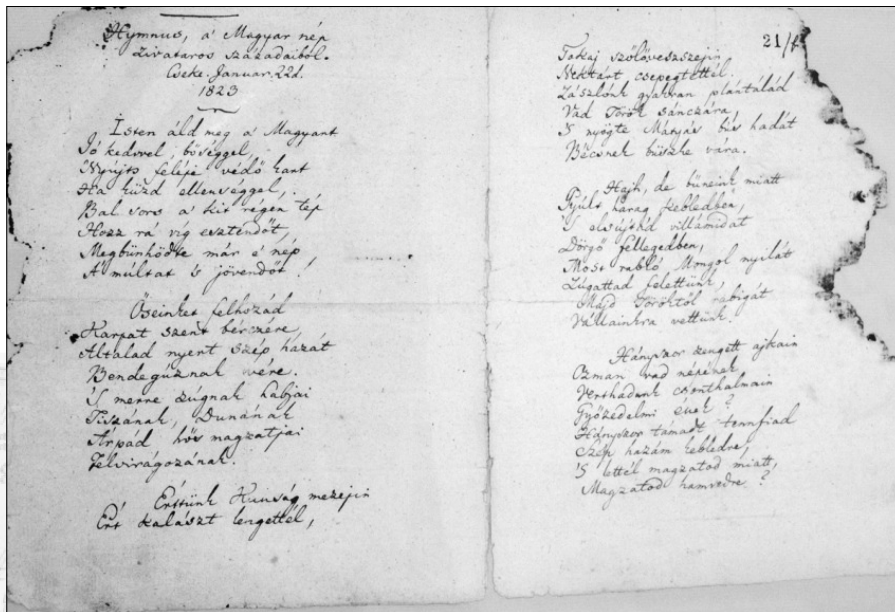 Hymnus, a' Magyar nép
zivataros századaiból.
Cseke. Januar. 22d.
1823
Isten áld meg a' Magyart
Jó kedvvel, bőséggel,
Nyújts feléje védő kart
Ha küzd ellenséggel,
Bal sors a' kit régen tép
Hozz rá víg esztendőt,
Megbünhödte már e' nép
A' múltat 's jövendőt!
Őseinket felhozád
Kárpát szent bérczére,
Általad nyert szép hazát
Bendegúznak vére.
'S merre zúgnak habjai
Tiszának, Dunának
Árpád hős magzatjai
Felvirágozának.
Értünk Kunság mezejin
Ért kalászt lengettél,
21/f
Tokaj szőlővesszejin
Nektárt csepegtettél.
Zászlónk gyakran plántálád
Vad Török sánczára,
'S nyögte Mátyás bús hadát
Bécsnek büszke vára.
Hajh, de bűneink miatt
Gyúlt harag kebledben,
'S elsújtád villámidat
Dörgő fellegedben,
Most rabló Mongol nyilát
Zúgattad felettünk,
Majd Töröktől rabigát
Vállainkra vettünk.
Hányszor zengett ajkain
Ozman vad népének
Vert hadunk csonthalmain
Győzedelmi ének?
Hányszor támadt tennfiad
Szép hazám kebledre,
'S lettél magzatod miatt,
Magzatod hamvvedre?